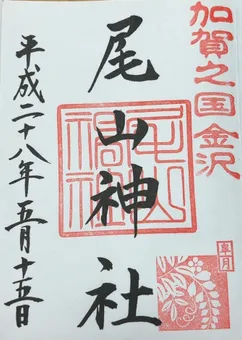 加賀之国 金沢
尾山神社
尾山神社
皐月
平成二十八年五月十五日